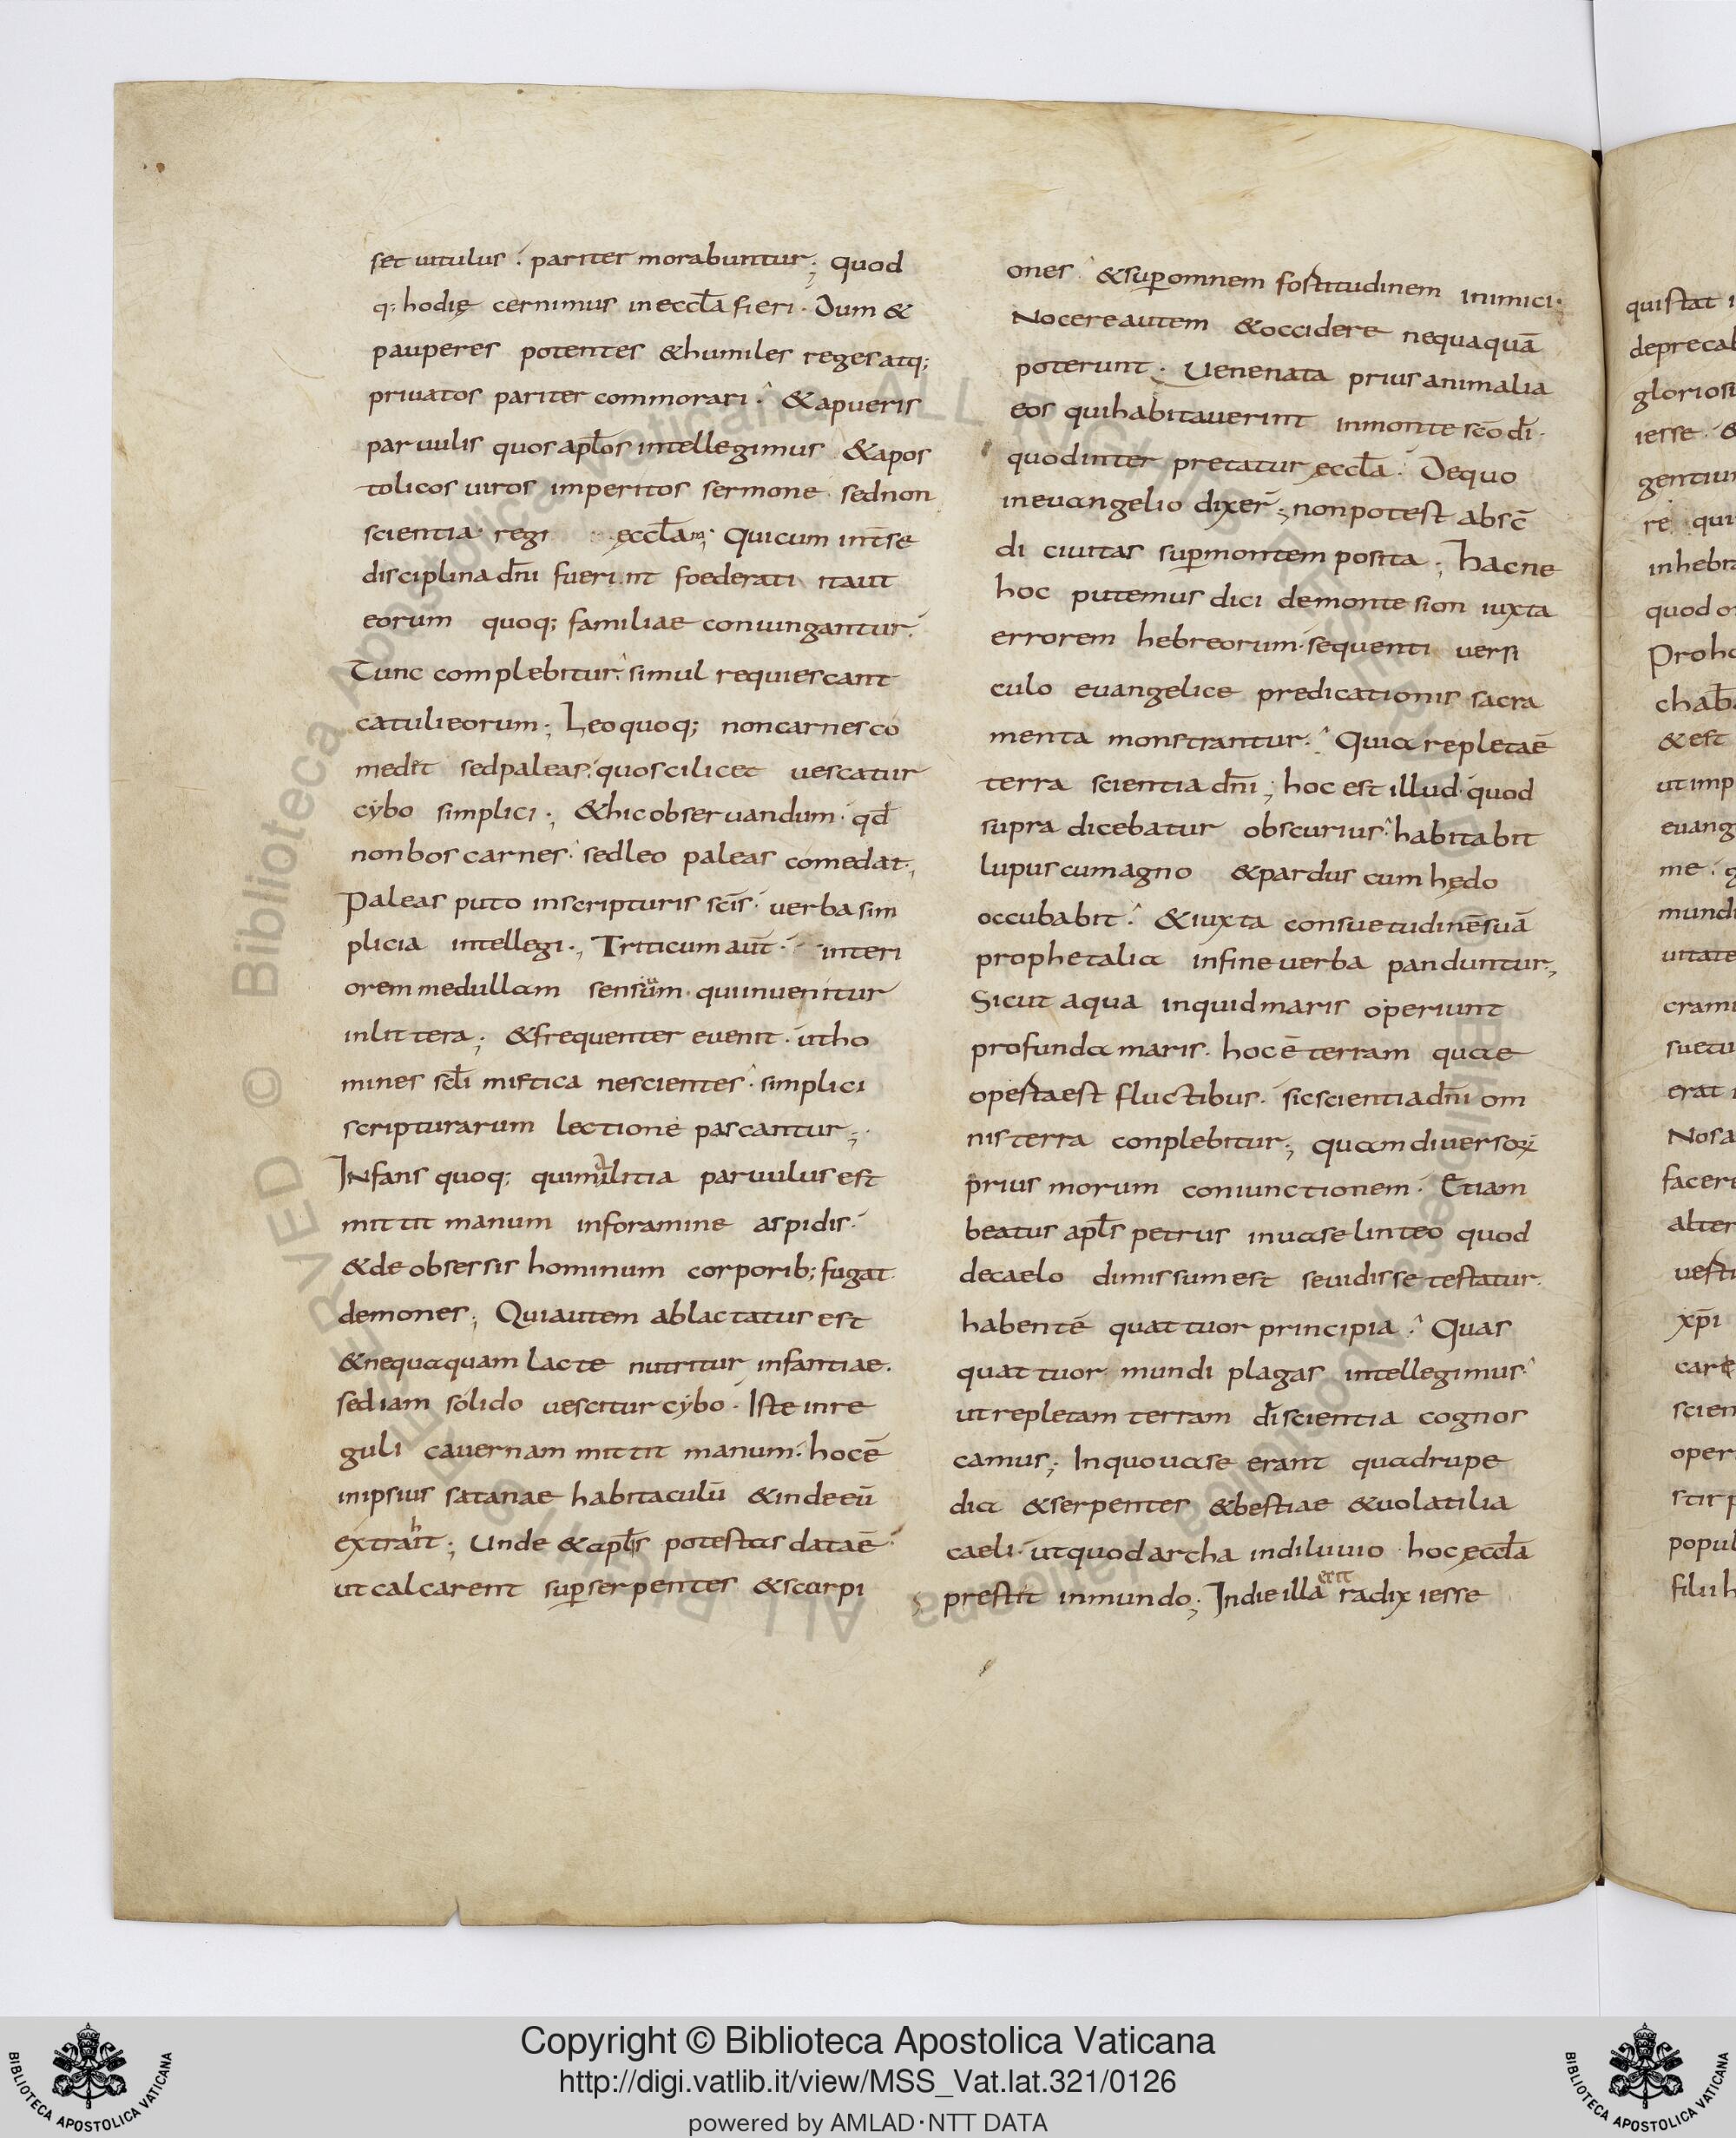 set uitulus : pariter morabuntur ; quod
q: hodię cernimus in eccl̄a fieri · Dum &
pauperes potentes & humiles reges atq;
priuatos pariter commorari · & a pueris
paruulis quos apl̄os intellegimus & apos
tolicos uiros imperitos sermone · sed non
scientia · regi eccl̄am ; Qui cum int̄ se
disciplina dn̄i fuerint foederati ita ut
eorum quoq; familiae coniungantur ·
Tunc complebitur · simul requiescant
catuli eorum ; Leo quoq; non carnes co
medit sed paleas · quo scilicet uescatur
cybo simplici ; & hic obseruandum · qd̄
non bos carnes · sed leo paleas comedat ;
Paleas puto in scripturis scīs · uerba sim
plicia intellegi ; Triticum aut̄ · interi
orem medullam sensum · qui inuenitur
in littera ; & frequenter euenit · ut ho
mines scl̄i mistica nescientes · simplici
scripturarum lectione pascantur ;
INfans quoq; qui malitia paruulus est
mittit manum in foramine aspidis ·
& de obsessis hominum corporib; fugat
demones ; Qui autem ablactatus est
& nequaquam lacte nutritur infantiae ·
sed iam solido uescitur cybo · Iste in re
guli cauernam mittit manum · hoc ē
in ipsius satanae habitaculū & inde eū
extrahit ; Unde & apl̄is potestas data ē
ut calcarent sup serpentes & scorpi
ones · & sup omnem fostitudinem inimici ·
Nocere autem & occidere nequaquā
poterunt ; Uenenata prius animalia
eos qui habitauerint in monte sc̄o dī ·
quod inter pretatur eccl̄a · De quo
in euangelio dixer̄ ; non potest absc̄
di ciuitas sup montem posita ; hac ne
hoc putemus dici de monte sion iuxta
errorem hebreorum · sequenti uersi
culo euangelice predicationis sacra
menta monstrantur · Quia repleta ē
terra scientia dn̄i ; hoc est illud · quod
supra dicebatur obscurius · habitabit
lupus cum agno & pardus cum hędo
occubabit · & iuxta consuetudinē suā
prophetalia in fine uerba panduntur ;
Sicut aqua inquid maris operiunt
profunda maris · hoc ē terram quae
opesta est fluctibus · sic scientia dn̄i om
nis terra conplebitur ; quam diuersoꝝ
prius morum coniunctionem · Etiam
beatus apl̄s petrus in uase linteo quod
de caelo dimissum est se uidisse testatur ·
habentē quattuor principia · Quas
quattuor mundi plagas intellegimus ·
ut repletam terram dī scientia cognos
camus ; In quo uase erant quadrupe
dia & serpentes & bestiae & uolatilia
caeli · ut quod archa in diluuio hoc eccl̄a
prestit in mundo ; In die illa erit radix iesse
qui stat
gloriosi
iesse · &
re qui
in hebr
quod o
& est
ut imp
euang
me ·
mundi
erat
Nos a
facere
xp̄i
scien
oper
stirp
popul
filii h
© Biblioteca Apostolica Vaticana ALL RIGHTS RESERVED
Copyright © Biblioteca Apostolica Vaticana
http://digi.vatlib.it/view/MSS_Vat.lat.321/0126
powered by AMLAD·NTT DATA
BIBLIOTECA APOSTOLICA VATICANA
BIBLIOTECA APOSTOLICA VATICANA